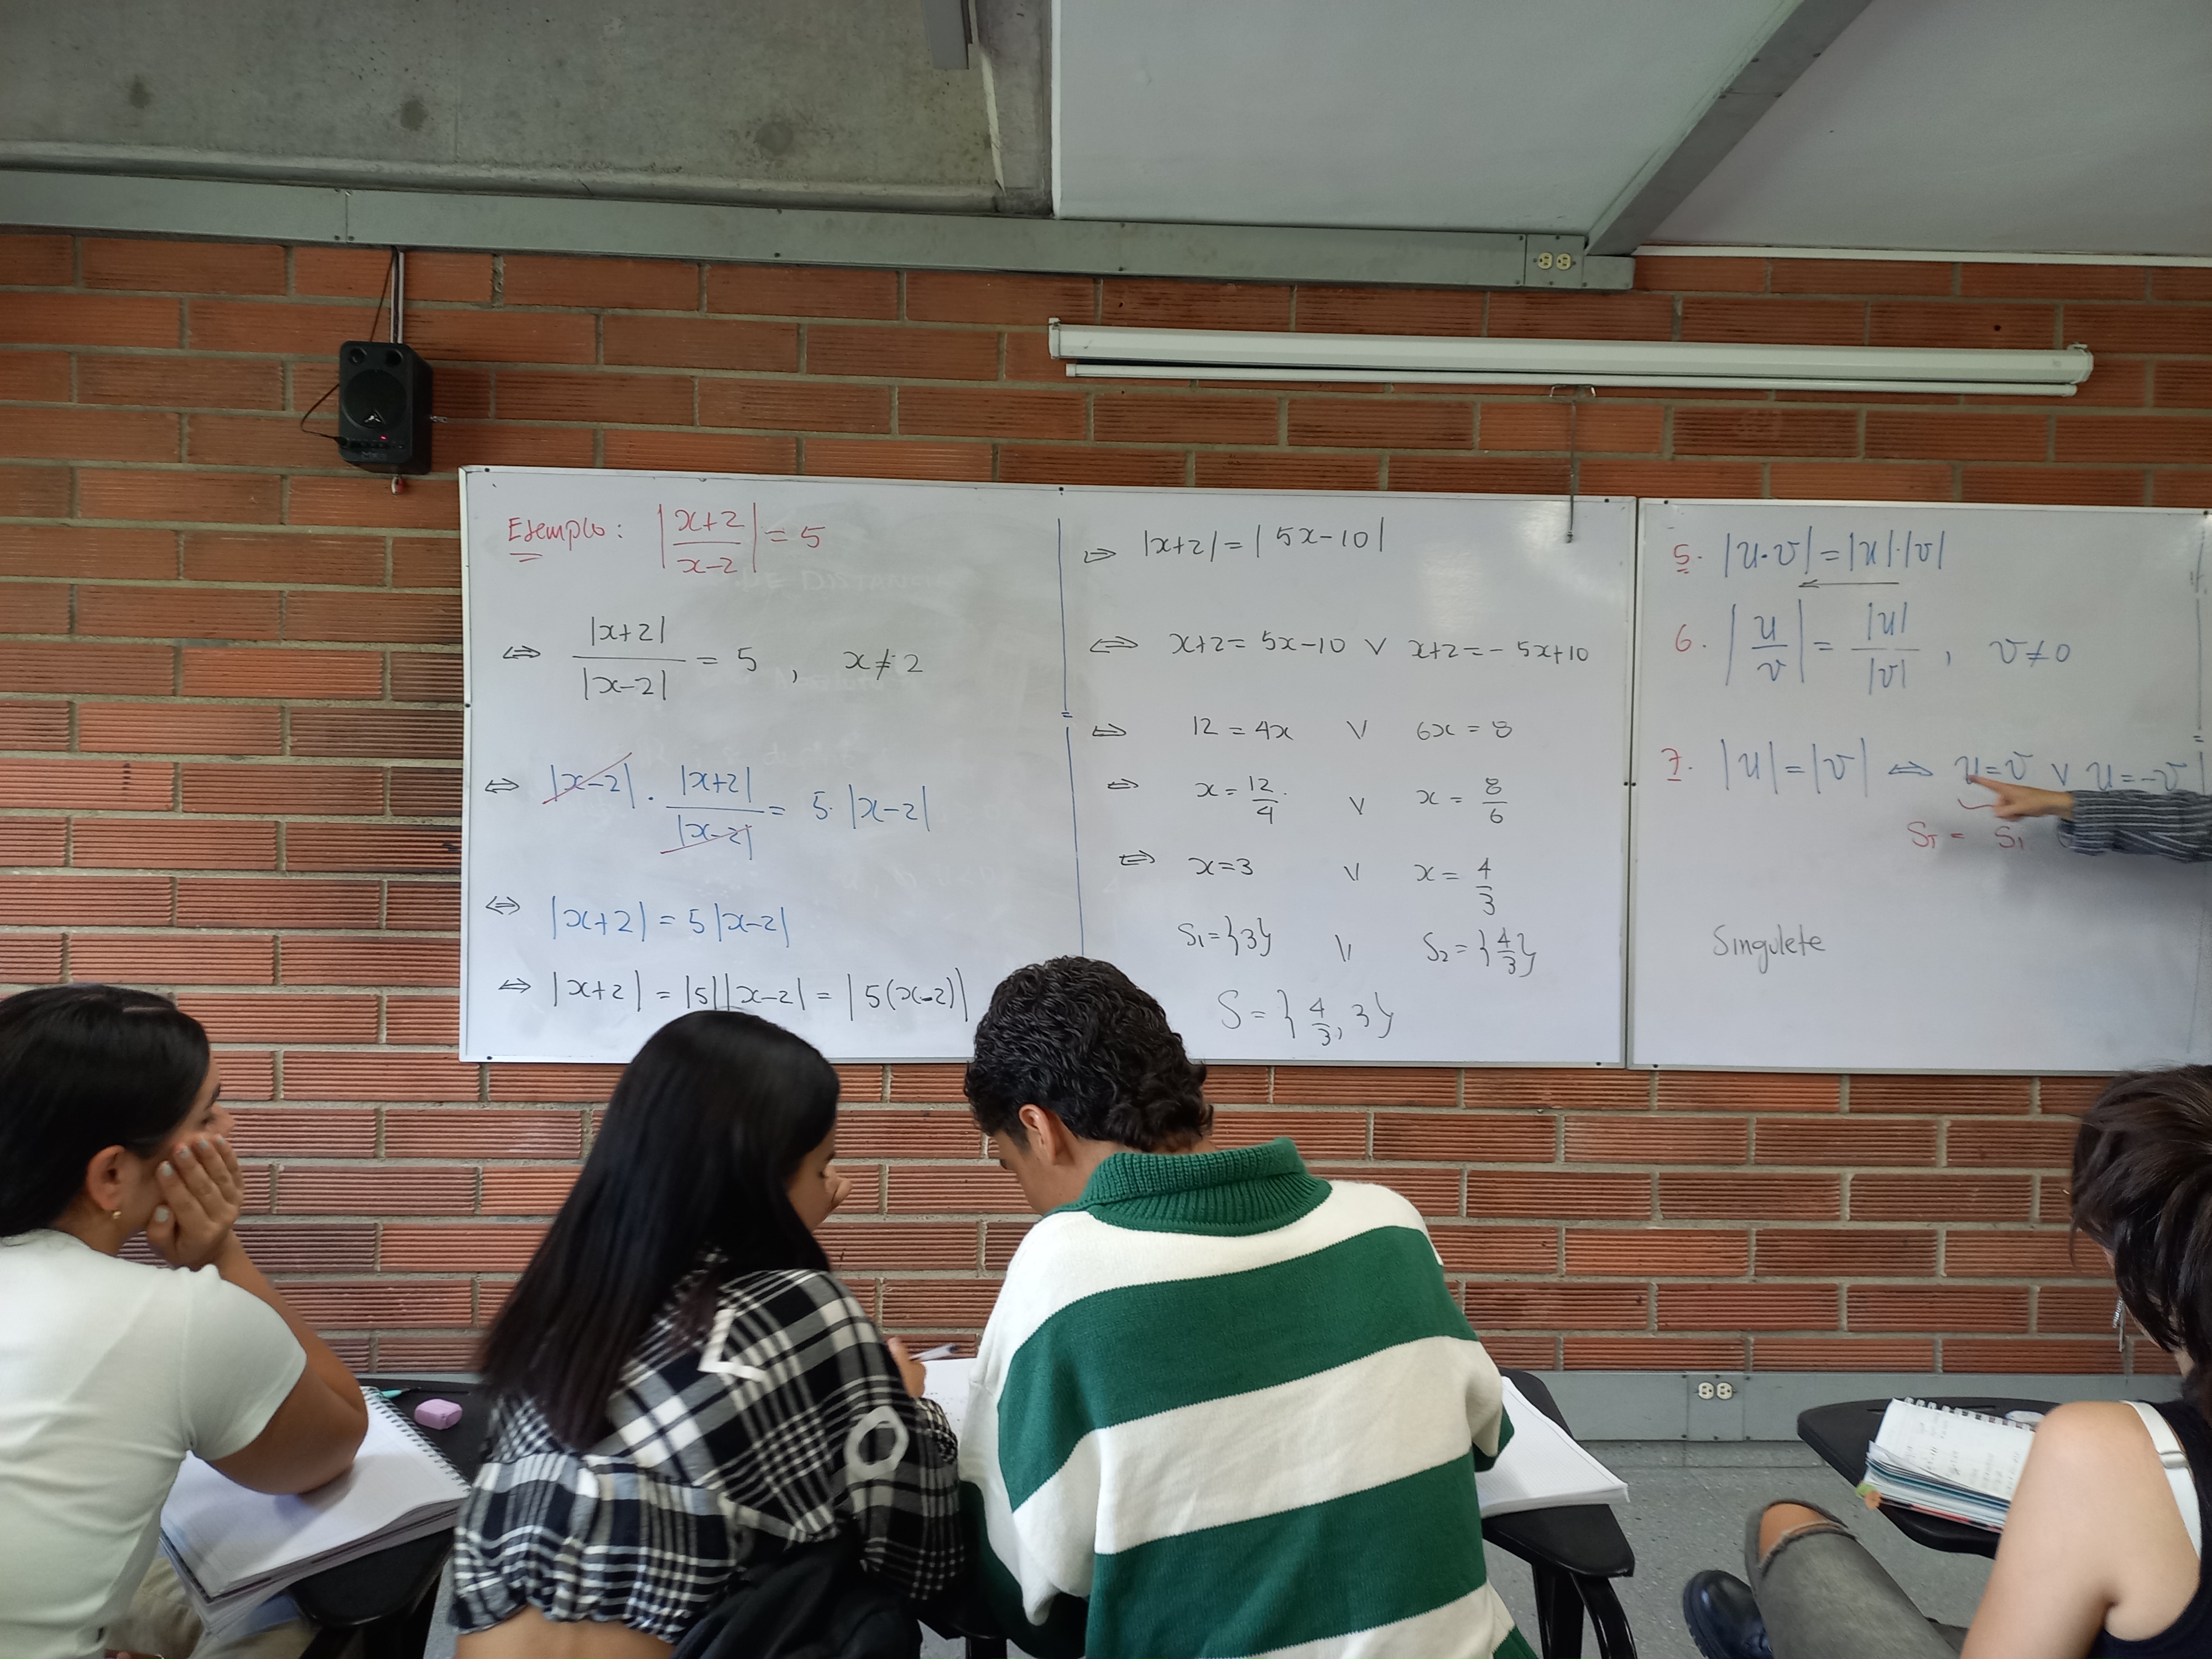 Ejemplo: |x+2/x-2| = 5
⇔ |x+2|/|x-2| = 5 , x ≠ 2
⇔ |x-2| · |x+2|/|x-2| = 5 · |x-2|
⇔ |x+2| = 5|x-2|
⇔ |x+2| = |5||x-2| = |5(x-2)|
⇔ |x+2| = |5x-10|
⇔ x+2 = 5x-10 ∨ x+2 = -5x+10
⇔ 12 = 4x ∨ 6x = 8
⇔ x = 12/4 ∨ x = 8/6
⇔ x = 3 ∨ x = 4/3
S₁ = {3} ∨ S₂ = {4/3}
S = {4/3, 3}
5. |u·v| = |u|·|v|
6. |u/v| = |u|/|v| , v ≠ 0
7. |u| = |v| ⇔ u = v ∨ u = -v
= S₁
Singulete